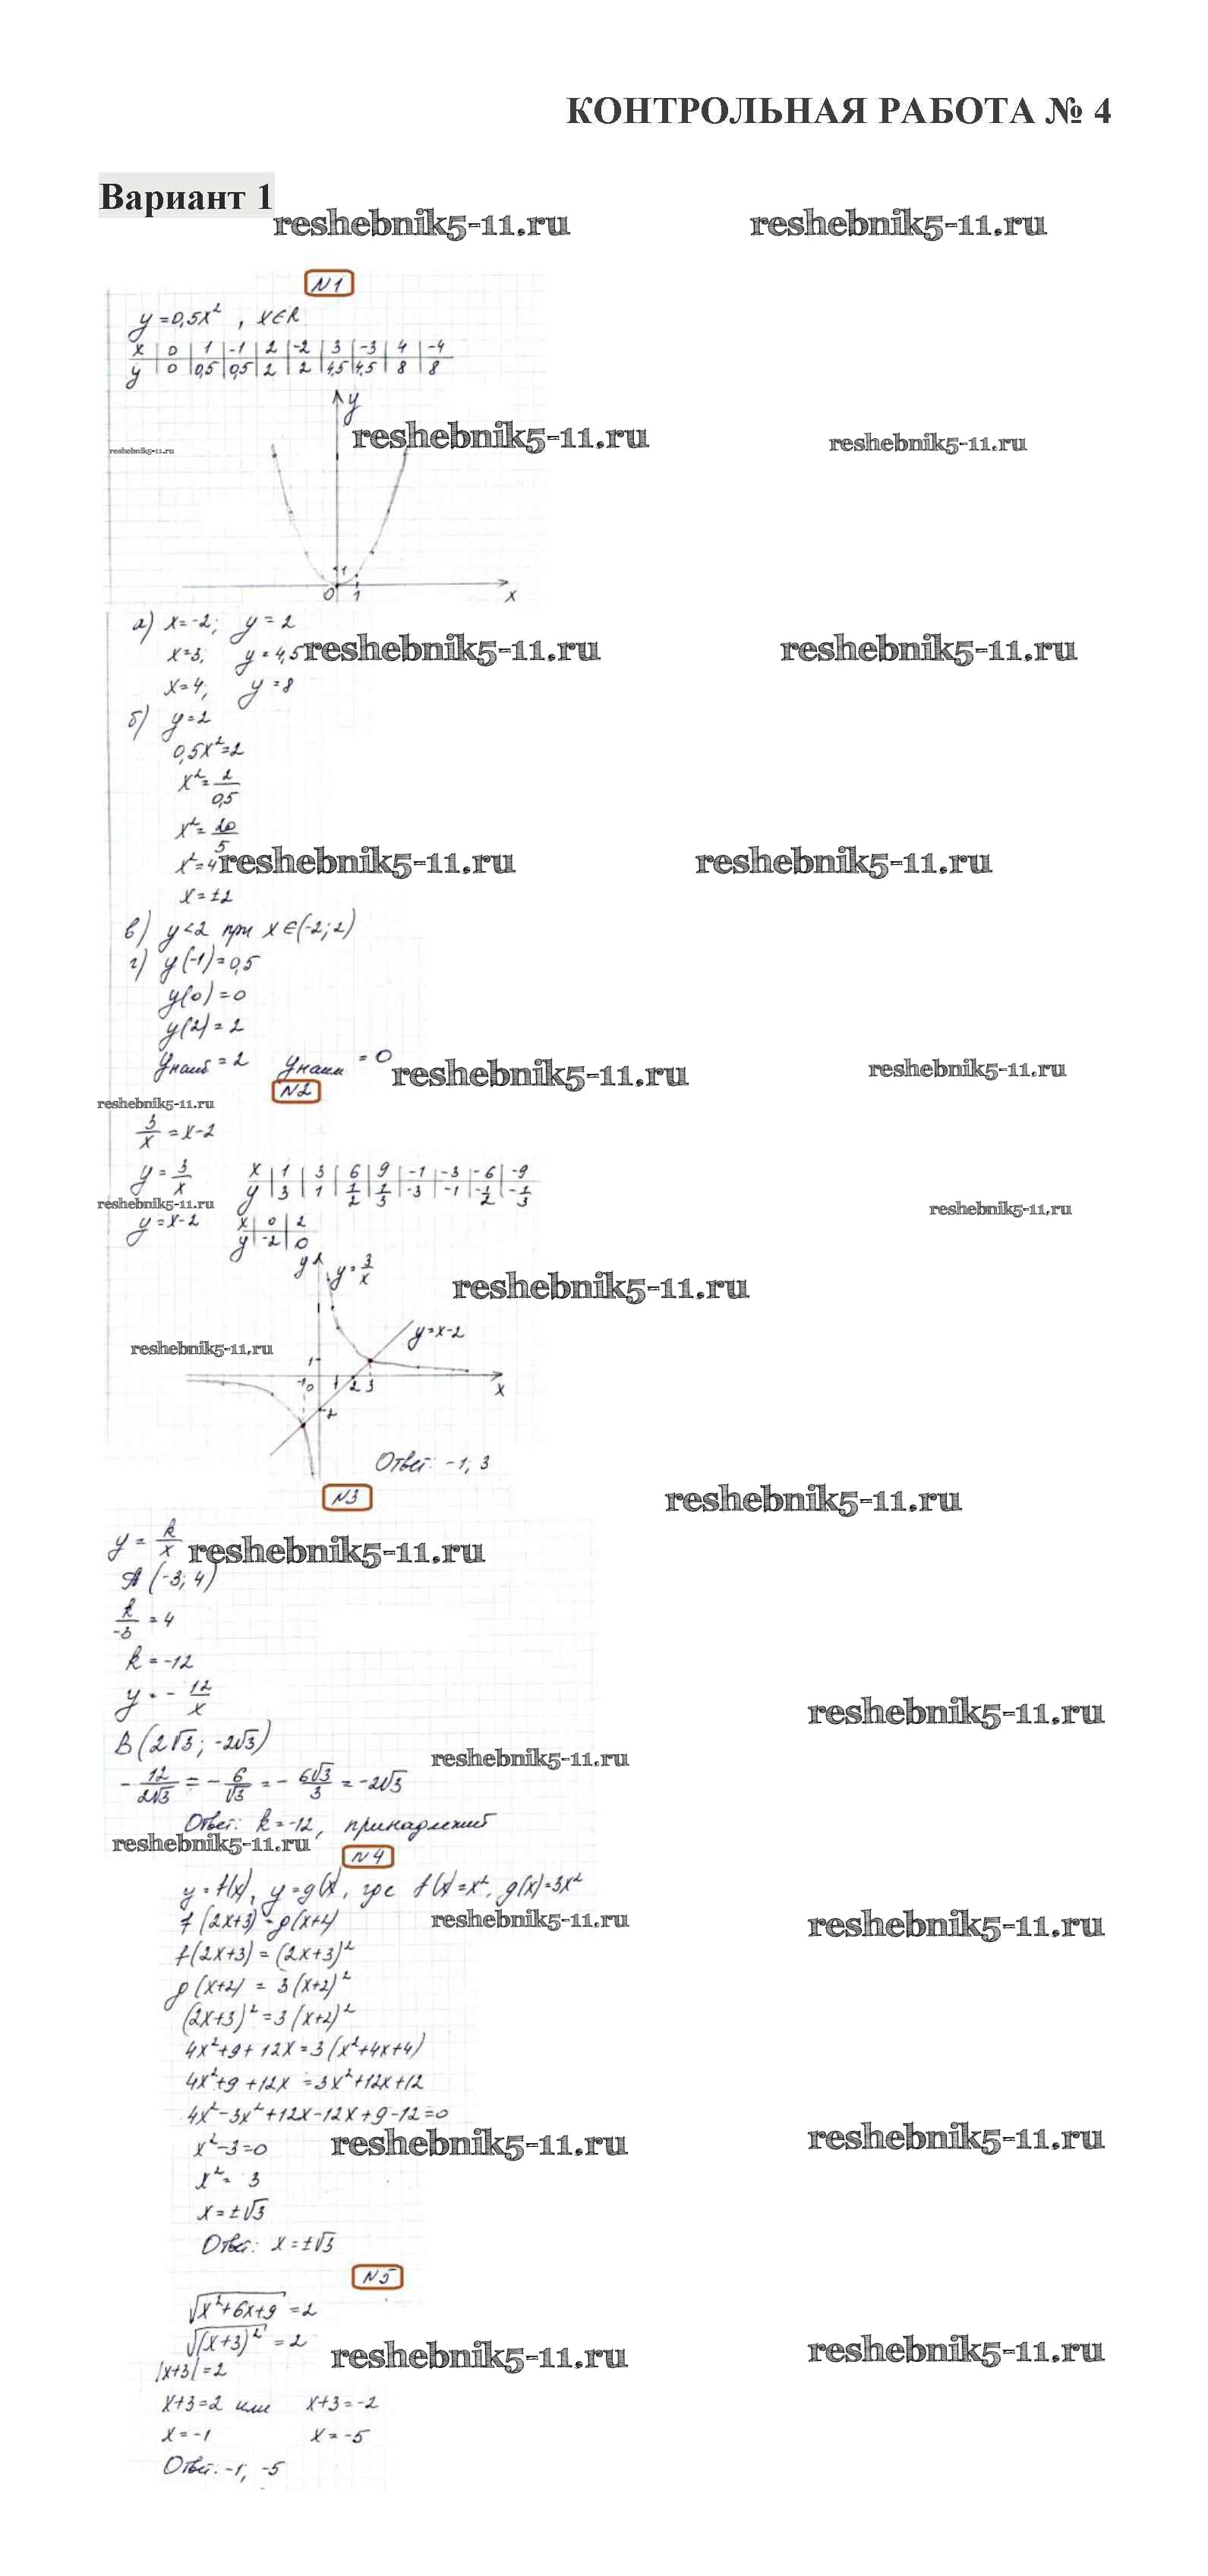 КОНТРОЛЬНАЯ РАБОТА № 4
Вариант 1
reshebnik5-11.ru reshebnik5-11.ru
N1
y=0,5x², x∈R
x | 0 | 1 | -1 | 2 | -2 | 3 | -3 | 4 | -4
y | 0 | 0,5 | 0,5 | 2 | 2 | 4,5 | 4,5 | 8 | 8
y
reshebnik5-11.ru reshebnik5-11.ru
reshebnik5-11.ru
1
0 1 x
а) x=-2; y=2
x=3; y=4,5 reshebnik5-11.ru reshebnik5-11.ru
x=4; y=8
б) y=2
0,5x²=2
x²=2/0,5
x²=20/5
x²=4 reshebnik5-11.ru reshebnik5-11.ru
x=±2
в) y<2 при x∈(-2;2)
г) y(-1)=0,5
y(0)=0
y(2)=2
yнаиб=2 yнаим=0 reshebnik5-11.ru reshebnik5-11.ru
N2
reshebnik5-11.ru
3/x=x-2
y=3/x x | 1 | 3 | 6 | 9 | -1 | -3 | -6 | -9
y | 3 | 1 | 1/2 | 1/3 | -3 | -1 | -1/2 | -1/3
reshebnik5-11.ru reshebnik5-11.ru
y=x-2 x | 0 | 2
y | -2 | 0
y y=3/x
reshebnik5-11.ru
y=x-2
reshebnik5-11.ru
1
-1 0 1 2 3 x
-2
Ответ: -1; 3
N3 reshebnik5-11.ru
y=k/x reshebnik5-11.ru
A(-3; 4)
k/-3=4
k=-12
y=-12/x reshebnik5-11.ru
B(2√3; -2√3)
reshebnik5-11.ru
-12/2√3=-6/√3=-6√3/3=-2√3
Ответ: k=-12, принадлежит
reshebnik5-11.ru
N4
y=f(x), y=g(x), где f(x)=x², g(x)=3x²
f(2x+3)=g(x+2) reshebnik5-11.ru reshebnik5-11.ru
f(2x+3)=(2x+3)²
g(x+2)=3(x+2)²
(2x+3)²=3(x+2)²
4x²+9+12x=3(x²+4x+4)
4x²+9+12x=3x²+12x+12
4x²-3x²+12x-12x+9-12=0
x²-3=0 reshebnik5-11.ru reshebnik5-11.ru
x²=3
x=±√3
Ответ: x=±√3
N5
√x²+6x+9=2
√(x+3)²=2 reshebnik5-11.ru reshebnik5-11.ru
|x+3|=2
x+3=2 или x+3=-2
x=-1 x=-5
Ответ: -1; -5